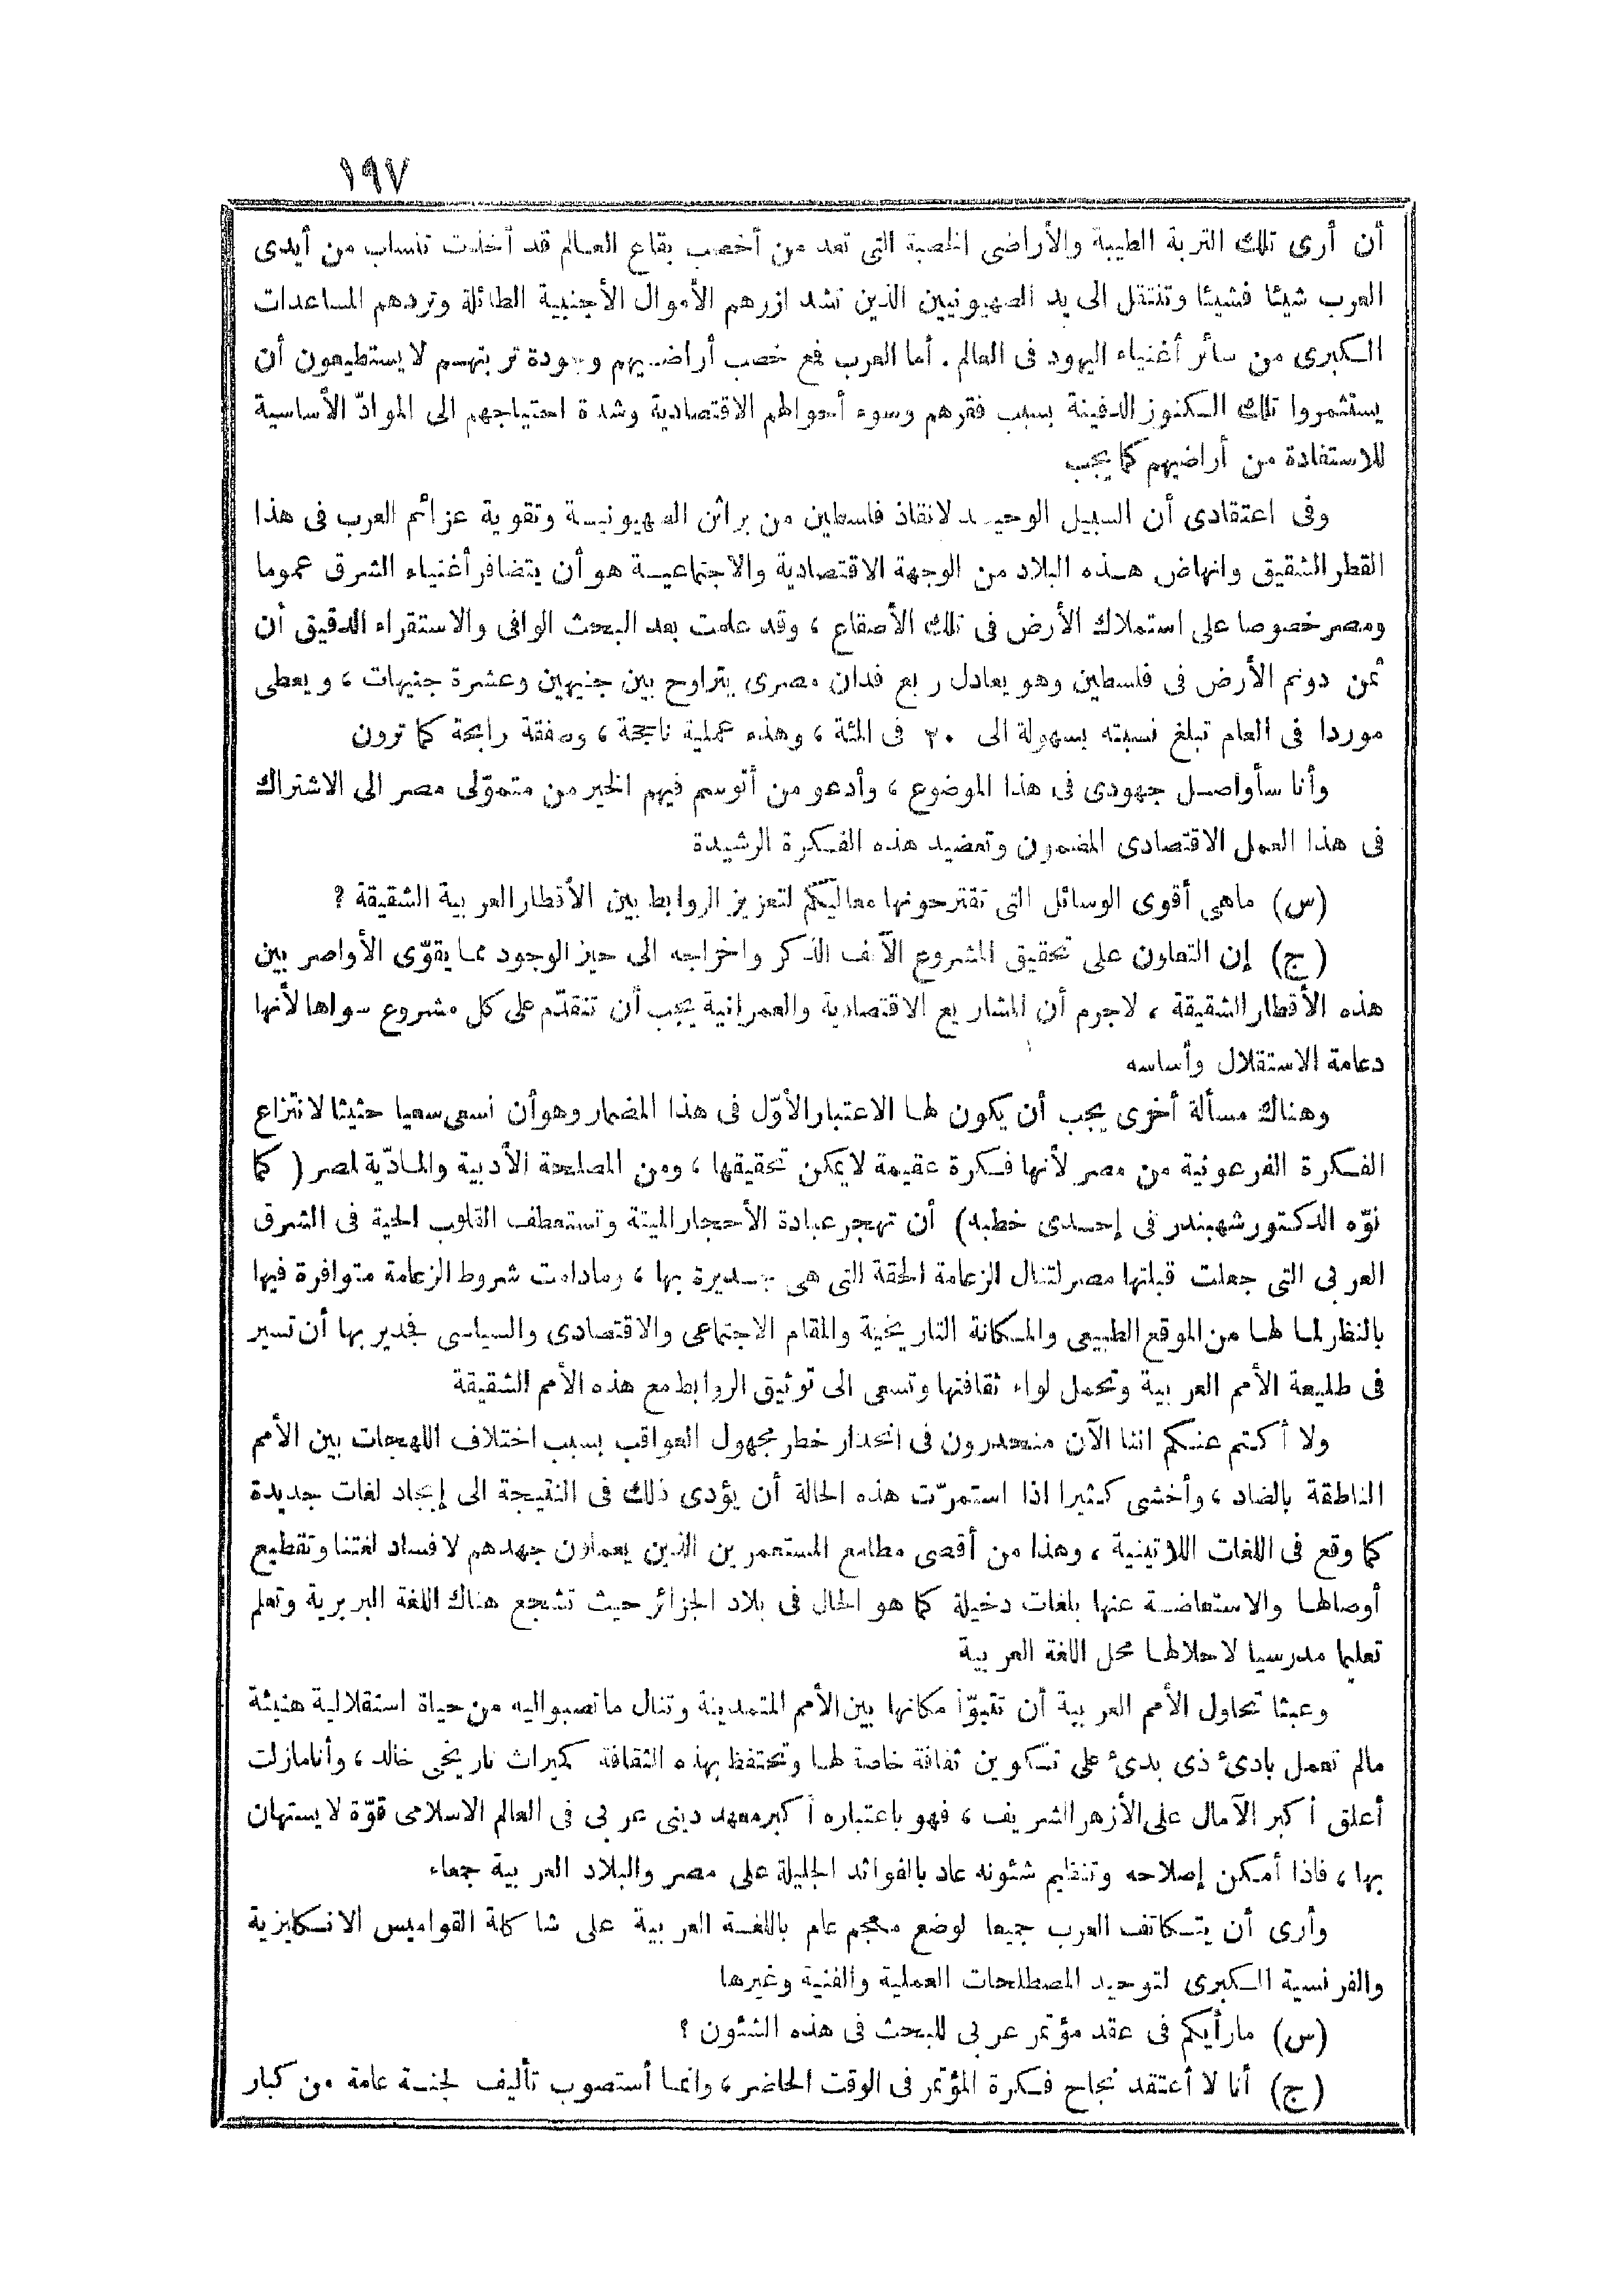 ١٩٧
أن أرى تلك التربة الطيبة والأراضى الخصبة التى تعد من أخصب بقاع العالم قد أخذت تنساب من أيدى
العرب شيئا فشيئا وتنتقل الى يد الصهيونيين الذين تشد ازرهم الأموال الأجنبية الطائلة وتردهم المساعدات
الكبرى من سائر أغنياء اليهود فى العالم . أما العرب فمع خصب أراضيهم وجودة تربتهم لا يستطيعون أن
يستثمروا تلك الكنوز الدفينة بسبب فقرهم وسوء أحوالهم الاقتصادية وشدة احتياجهم الى الموادّ الأساسية
للاستفادة من أراضيهم كما يجب
وفى اعتقادى أن السبيل الوحيد لانقاذ فلسطين من براثن الصهيونية وتقوية عزائم العرب فى هذا
القطر الشقيق وانهاض هذه البلاد من الوجهة الاقتصادية والاجتماعية هو أن يتضافر أغنياء الشرق عموما
ومصر خصوصا على استملاك الأرض فى تلك الأصقاع ، وقد علمت بعد البحث الوافى والاستقراء الدقيق أن
ثمن دونم الأرض فى فلسطين وهو يعادل ربع فدان مصرى يتراوح بين جنيهين وعشرة جنيهات ، ويعطى
موردا فى العام تبلغ نسبته بسهولة الى ٣٠ فى المئة ، وهذه عملية ناجحة ، وصفقة رابحة كما ترون
وأنا سأواصل جهودى فى هذا الموضوع ، وأدعو من أتوسم فيهم الخير من متموّلى مصر الى الاشتراك
فى هذا العمل الاقتصادى المضمون وتعضيد هذه الفكرة الرشيدة
(س) ماهي أقوى الوسائل التى تقترحونها معاليكم لتعزيز الروابط بين الأقطار العربية الشقيقة ؟
(ج) إن التعاون على تحقيق المشروع الآنف الذكر واخراجه الى حيز الوجود مما يقوّى الأواصر بين
هذه الأقطار الشقيقة ، لاجرم أن المشاريع الاقتصادية والعمرانية يجب أن تتقدّم على كل مشروع سواها لأنها
دعامة الاستقلال وأساسه
وهناك مسألة أخرى يجب أن يكون لها الاعتبار الأوّل فى هذا المضمار وهو أن نسعى سعيا حثيثا لانتزاع
الفكرة الفرعونية من مصر لأنها فكرة عقيمة لا يمكن تحقيقها ، ومن المصلحة الأدبية والمادّية لمصر ( كما
نوّه الدكتور شهبندر فى إحدى خطبه) أن تهجر عبادة الأحجار الميتة وتستعطف القلوب الحية فى الشرق
العربى التى جعلت قبلتها مصر لتنال الزعامة الحقة التى هى جديرة بها ، ومادامت شروط الزعامة متوافرة فيها
بالنظر لما لها من الموقع الطبيعى والمكانة التاريخية والمقام الاجتماعى والاقتصادى والسياسى فجدير بها أن تسير
فى طليعة الأمم العربية وتحمل لواء ثقافتها وتسعى الى توثيق الروابط مع هذه الأمم الشقيقة
ولا أكتم عنكم اننا الآن منحدرون فى انحدار خطر مجهول العواقب بسبب اختلاف اللهجات بين الأمم
الناطقة بالضاد ، وأخشى كثيرا اذا استمرّت هذه الحالة أن يؤدى ذلك فى النتيجة الى إيجاد لغات جديدة
كما وقع فى اللغات اللاتينية ، وهذا من أقصى مطامع المستعمرين الذين يعملون جهدهم لافساد لغتنا وتقطيع
أوصالها والاستعاضة عنها بلغات دخيلة كما هو الحال فى بلاد الجزائر حيث تشجع هناك اللغة البربرية وتعلم
تعليما مدرسيا لاحلالها محل اللغة العربية
وعبثا تحاول الأمم العربية أن تتبوّأ مكانها بين الأمم المتمدينة وتنال ماتصبو اليه من حياة استقلالية هنيئة
مالم تعمل بادئ ذى بدئ على تكوين ثقافة خاصة لها وتحتفظ بهذه الثقافة كميراث تاريخى خالد ، وأنا مازلت
أعلق أكبر الآمال على الأزهر الشريف ، فهو باعتباره أكبر معهد دينى عربى فى العالم الاسلامى قوّة لا يستهان
بها ، فاذا أمكن إصلاحه وتنظيم شئونه عاد بالفوائد الجليلة على مصر والبلاد العربية جمعاء
وأرى أن يتكاتف العرب جميعا لوضع معجم عام باللغة العربية على شاكلة القواميس الانكليزية
والفرنسية الكبرى لتوحيد المصطلحات العملية والفنية وغيرها
(س) مارأيكم فى عقد مؤتمر عربى للبحث فى هذه الشئون ؟
(ج) أنا لا أعتقد نجاح فكرة المؤتمر فى الوقت الحاضر ، وانما أستصوب تأليف لجنة عامة من كبار